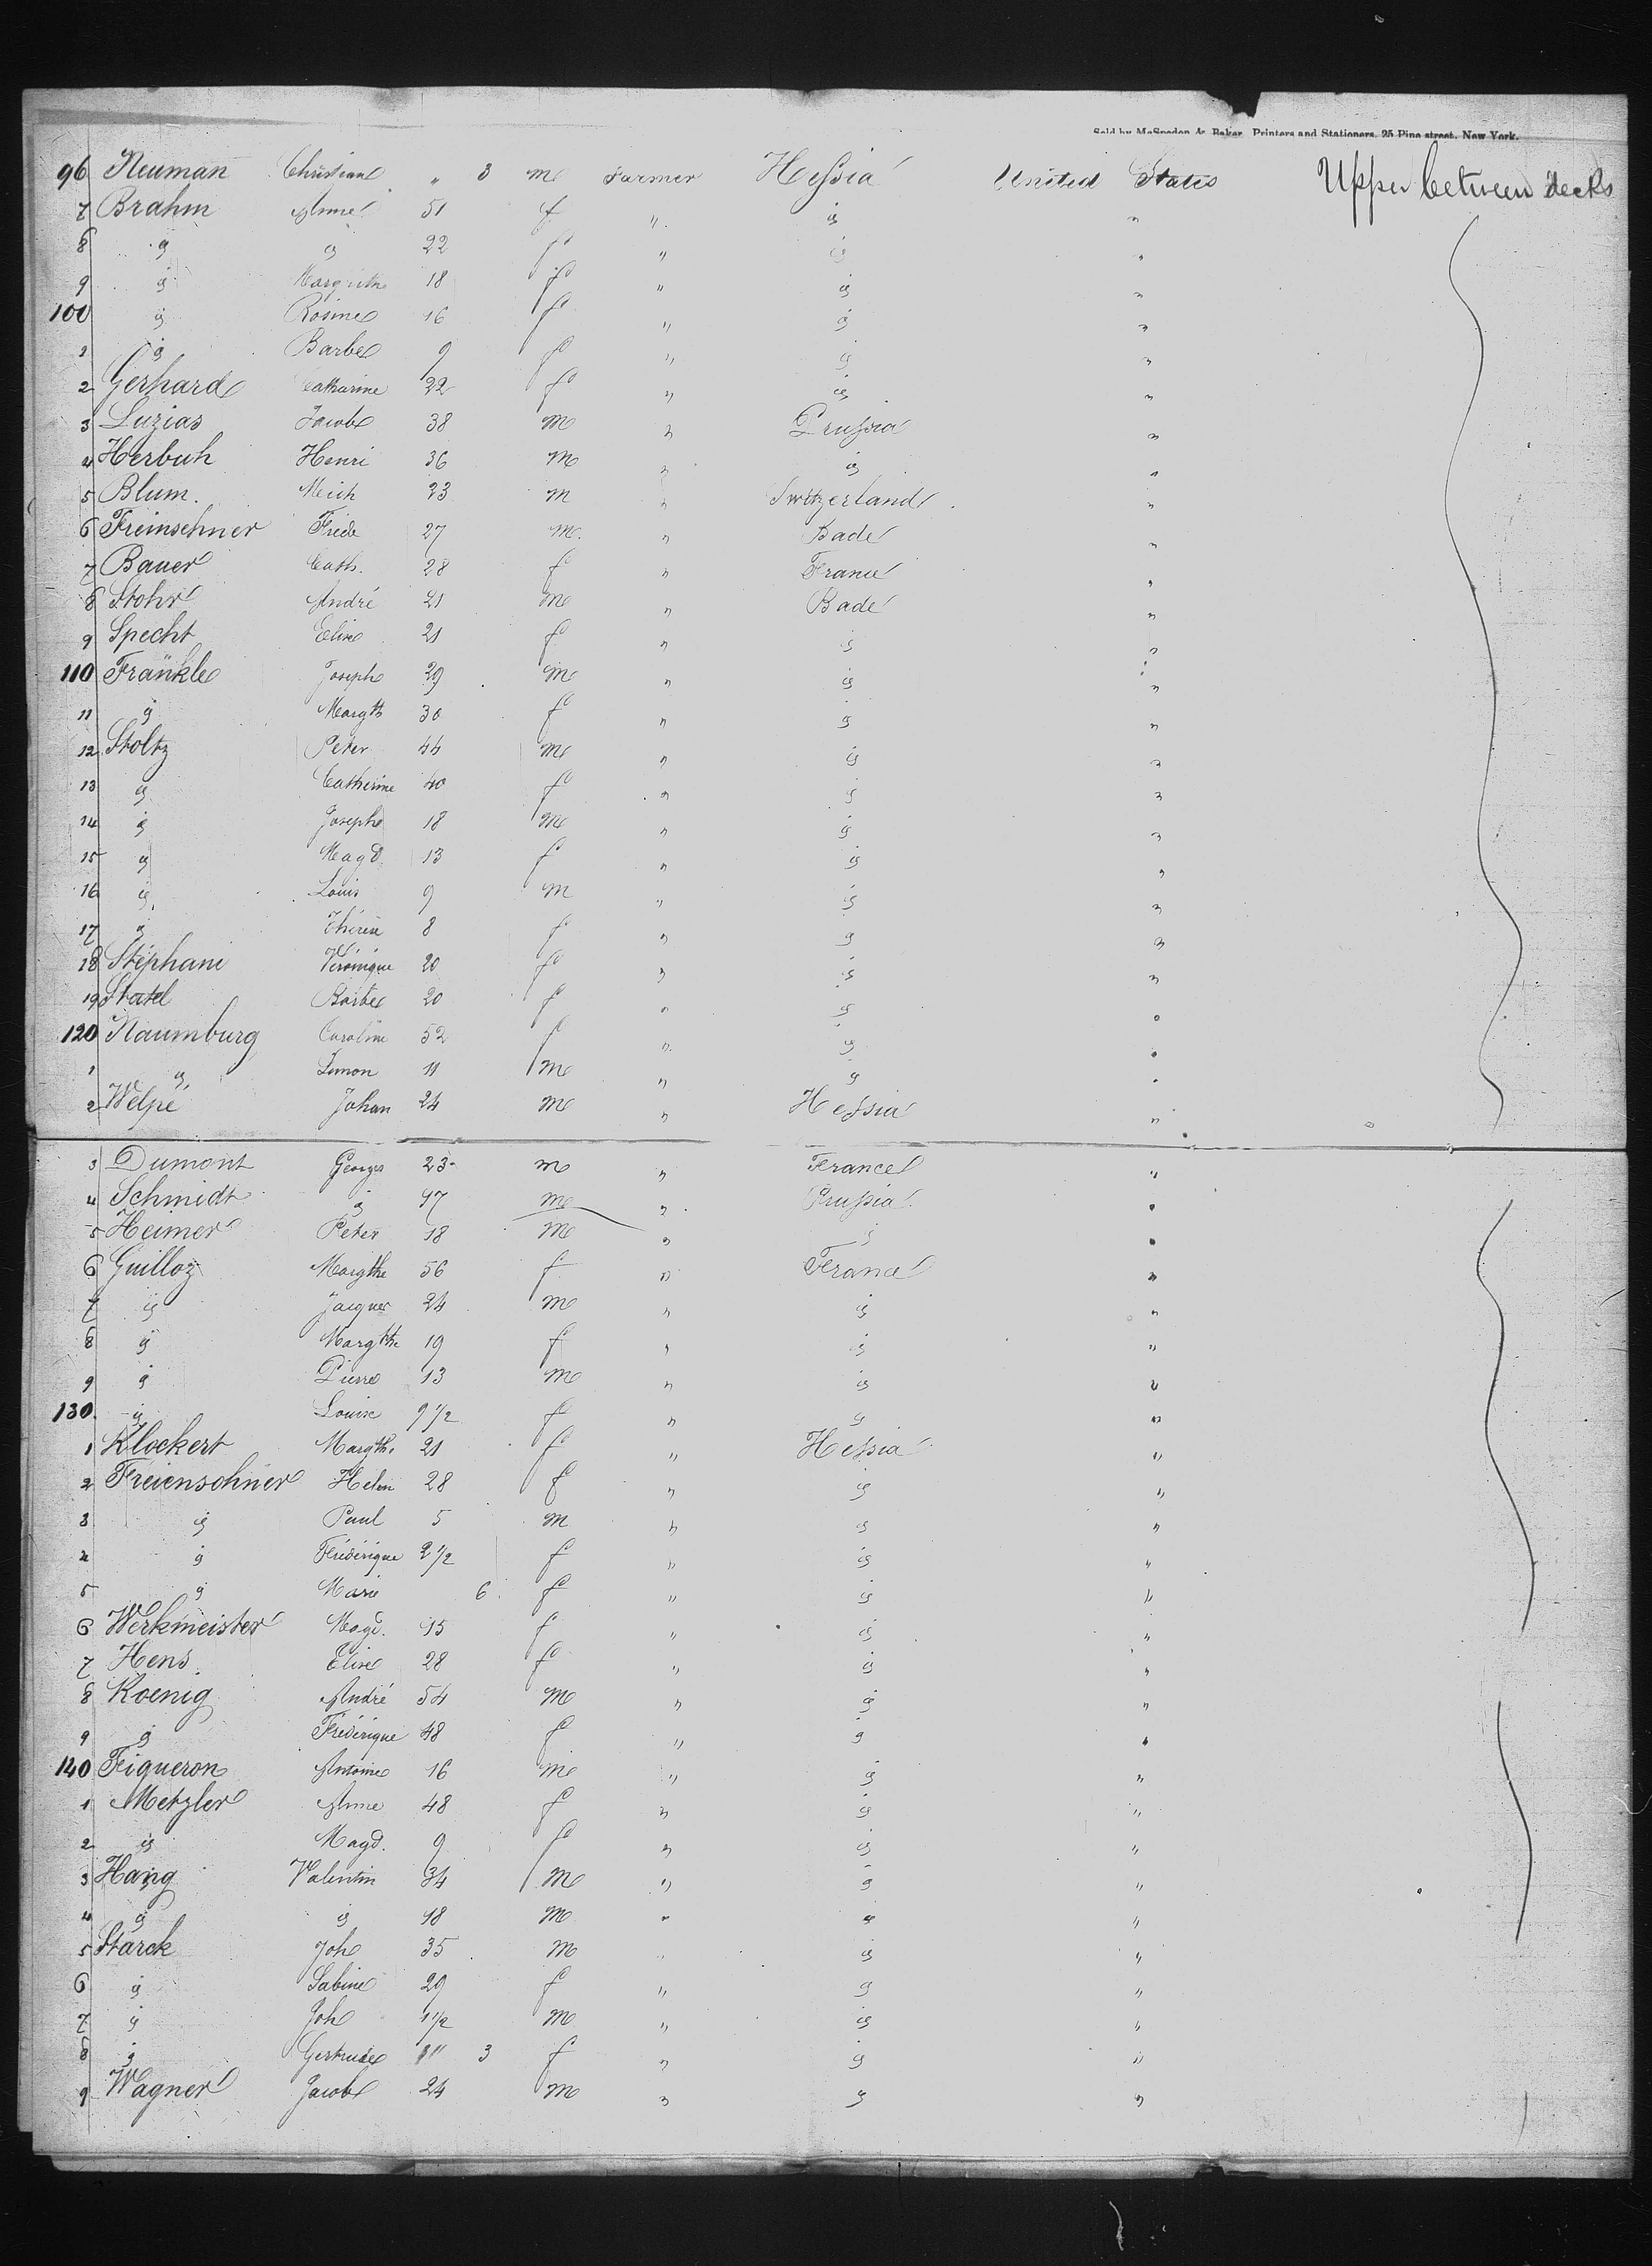 Sold by McSpedon & Baker, Printers and Stationers, 25 Pine street, New York.
96 Neuman Christian " 3 m Farmer Hessia United States Upper between decks
7 Brahm Anne 51 f " ig "
8 ig ig 22 f " ig "
9 ig Margrethe 18 f " ig "
100 ig Rosine 16 f " ig "
1 ig Barbe 9 f " ig "
2 Gerhard Catharine 22 f " ig "
3 Luzias Jacob 38 m " Prussia "
4 Herbuh Henri 36 m " ig "
5 Blum Meich 23 m " Switzerland "
6 Freinsehner Frede 27 m " Bade "
7 Bauer Cath. 28 f " France "
8 Stohr André 21 m " Bade "
9 Specht Elise 21 f " ig "
110 Fränkle Joseph 29 m " ig "
11 ig Margth 30 f " ig "
12 Stoltz Peter 44 m " ig "
13 ig Catherine 40 f " ig "
14 ig Joseph 18 m " ig "
15 ig Magd 13 f " ig "
16 ig Louis 9 m " ig "
17 ig Thérèse 8 f " ig "
18 Stéphani Véronique 20 f " ig "
19 Statel Barbe 20 f " ig "
120 Naumburg Caroline 52 f " ig "
1 ig Simon 11 m " ig "
2 Welpé Johan 24 m " Hessia "
3 Dumont Georges 23 m " France "
4 Schmidt ig 47 m " Prussia "
5 Heimer Peter 18 m " ig "
6 Guilloz Margthe 56 f " France "
7 ig Jacques 24 m " ig "
8 ig Margthe 19 f " ig "
9 ig Pierre 13 m " ig "
130 ig Louise 9 1/2 f " ig "
1 Klockert Margth. 21 f " Hessia "
2 Freiensohner Helen 28 f " ig "
3 ig Paul 5 m " ig "
4 ig Frédérique 2 1/2 f " ig "
5 ig Marie 6 f " ig "
6 Werkmeister Magd. 45 f " ig "
7 Hens Elise 28 f " ig "
8 Koenig André 54 m " ig "
9 ig Frédérique 48 f " ig "
140 Feigueron Antoine 16 m " ig "
1 Metzler Anne 48 f " ig "
2 ig Magd. 9 f " ig "
3 Hang Valentin 34 m " ig "
4 ig ig 18 m " ig "
5 Starck Joh 35 m " ig "
6 ig Sabine 29 f " ig "
7 ig Joh 1 1/2 m " ig "
8 ig Gertrude " 3 f " ig "
9 Wagner Jacob 24 m " ig "